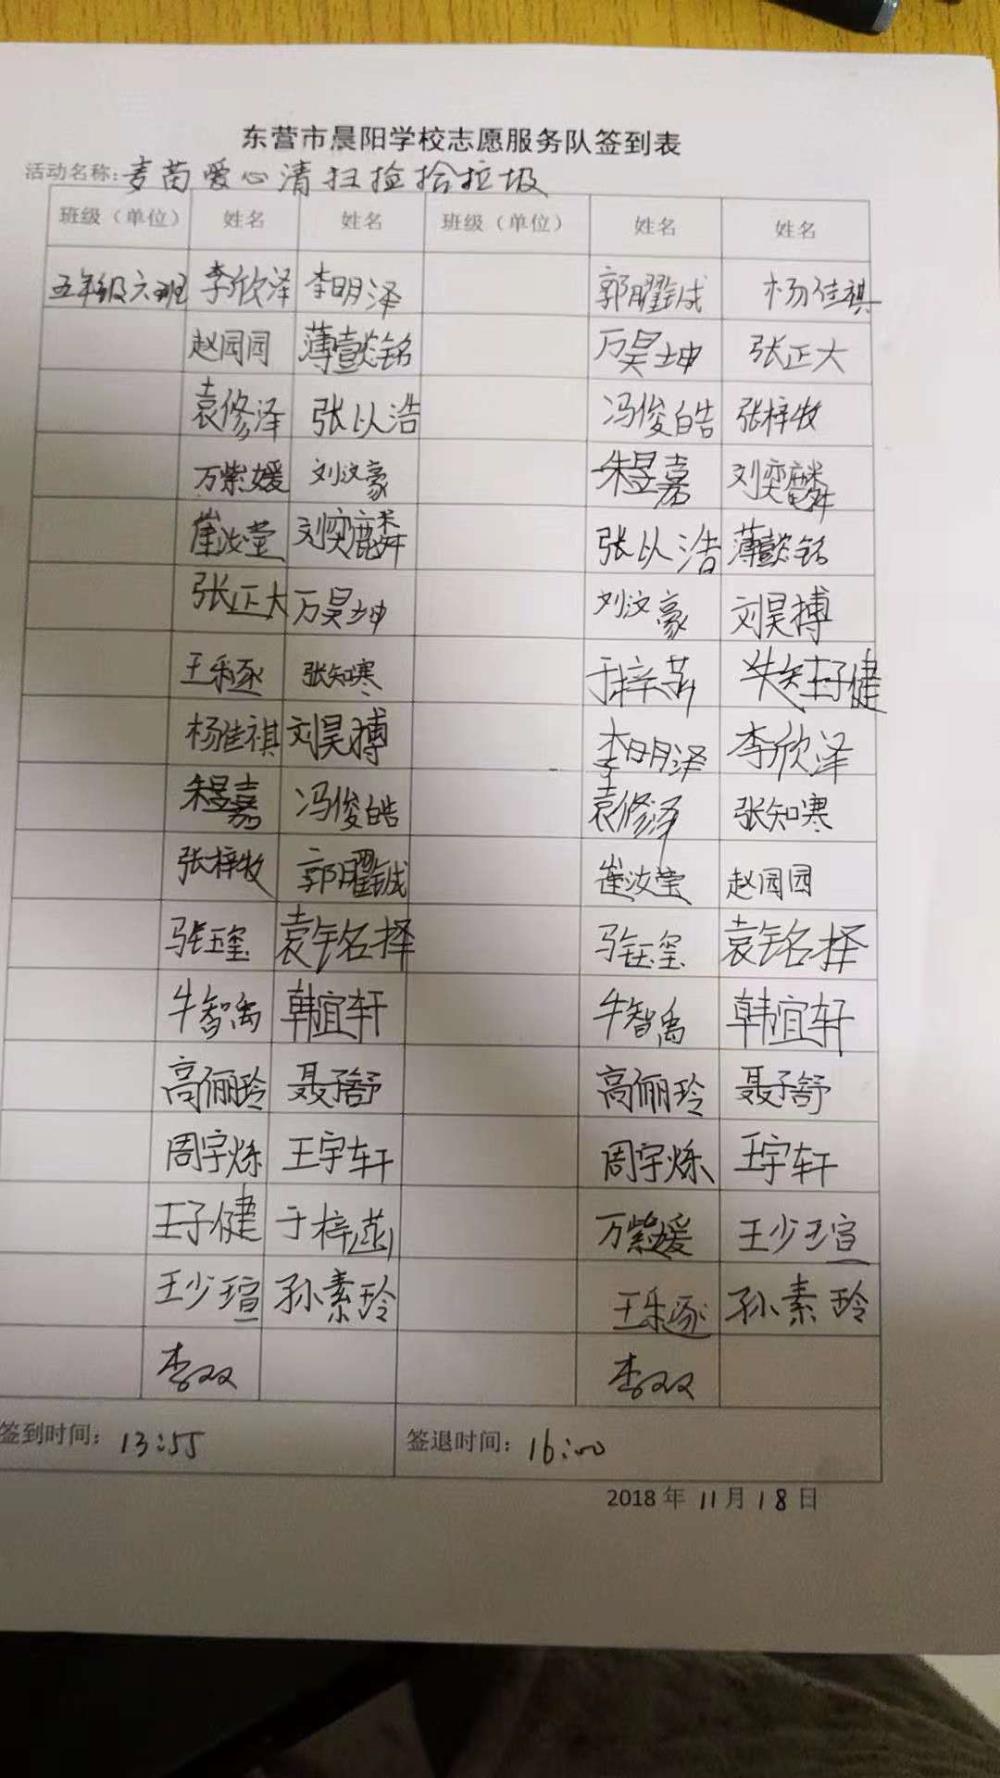 东营市晨阳学校志愿服务队签到表
活动名称:麦苗爱心清扫捡拾垃圾
班级（单位） 姓名 姓名 班级（单位） 姓名 姓名
五年级六班 李欣泽 李明泽 郭曜铖 杨佳祺
赵园园 薄懿铭 万昊坤 张正大
袁修泽 张以浩 冯俊皓 张梓牧
万紫媛 刘汶豪 朱昱嘉 刘奕麟
崔汝莹 刘奕麟 张以浩 薄懿铭
张正大 万昊坤 刘汶豪 刘昊搏
王乐逐 张知寒 于梓燕 王子健
杨佳祺 刘昊搏 李明泽 李欣泽
朱昱嘉 冯俊皓 袁修泽 张知寒
张梓牧 郭曜铖 崔汝莹 赵园园
马钰玺 袁铭择 马钰玺 袁铭择
牛智禹 韩宜轩 牛智禹 韩宜轩
高俪玲 聂子舒 高俪玲 聂子舒
周宇烁 王宇轩 周宇烁 王宇轩
王子健 于梓燕 万紫媛 王少瑄
王少瑄 孙素玲 王乐逐 孙素玲
李双 李双
签到时间：13:55 签退时间：16:00
2018年11月18日